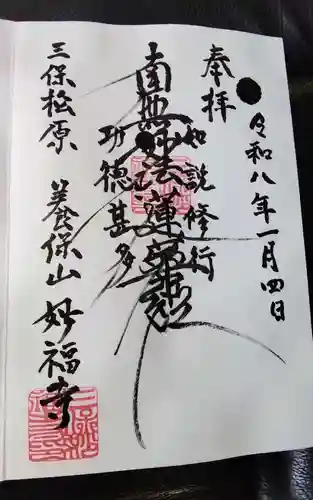 奉拝
令和八年一月四日
如説修行
南無妙法蓮華経
功徳甚多
三保松原 養保山 妙福寺